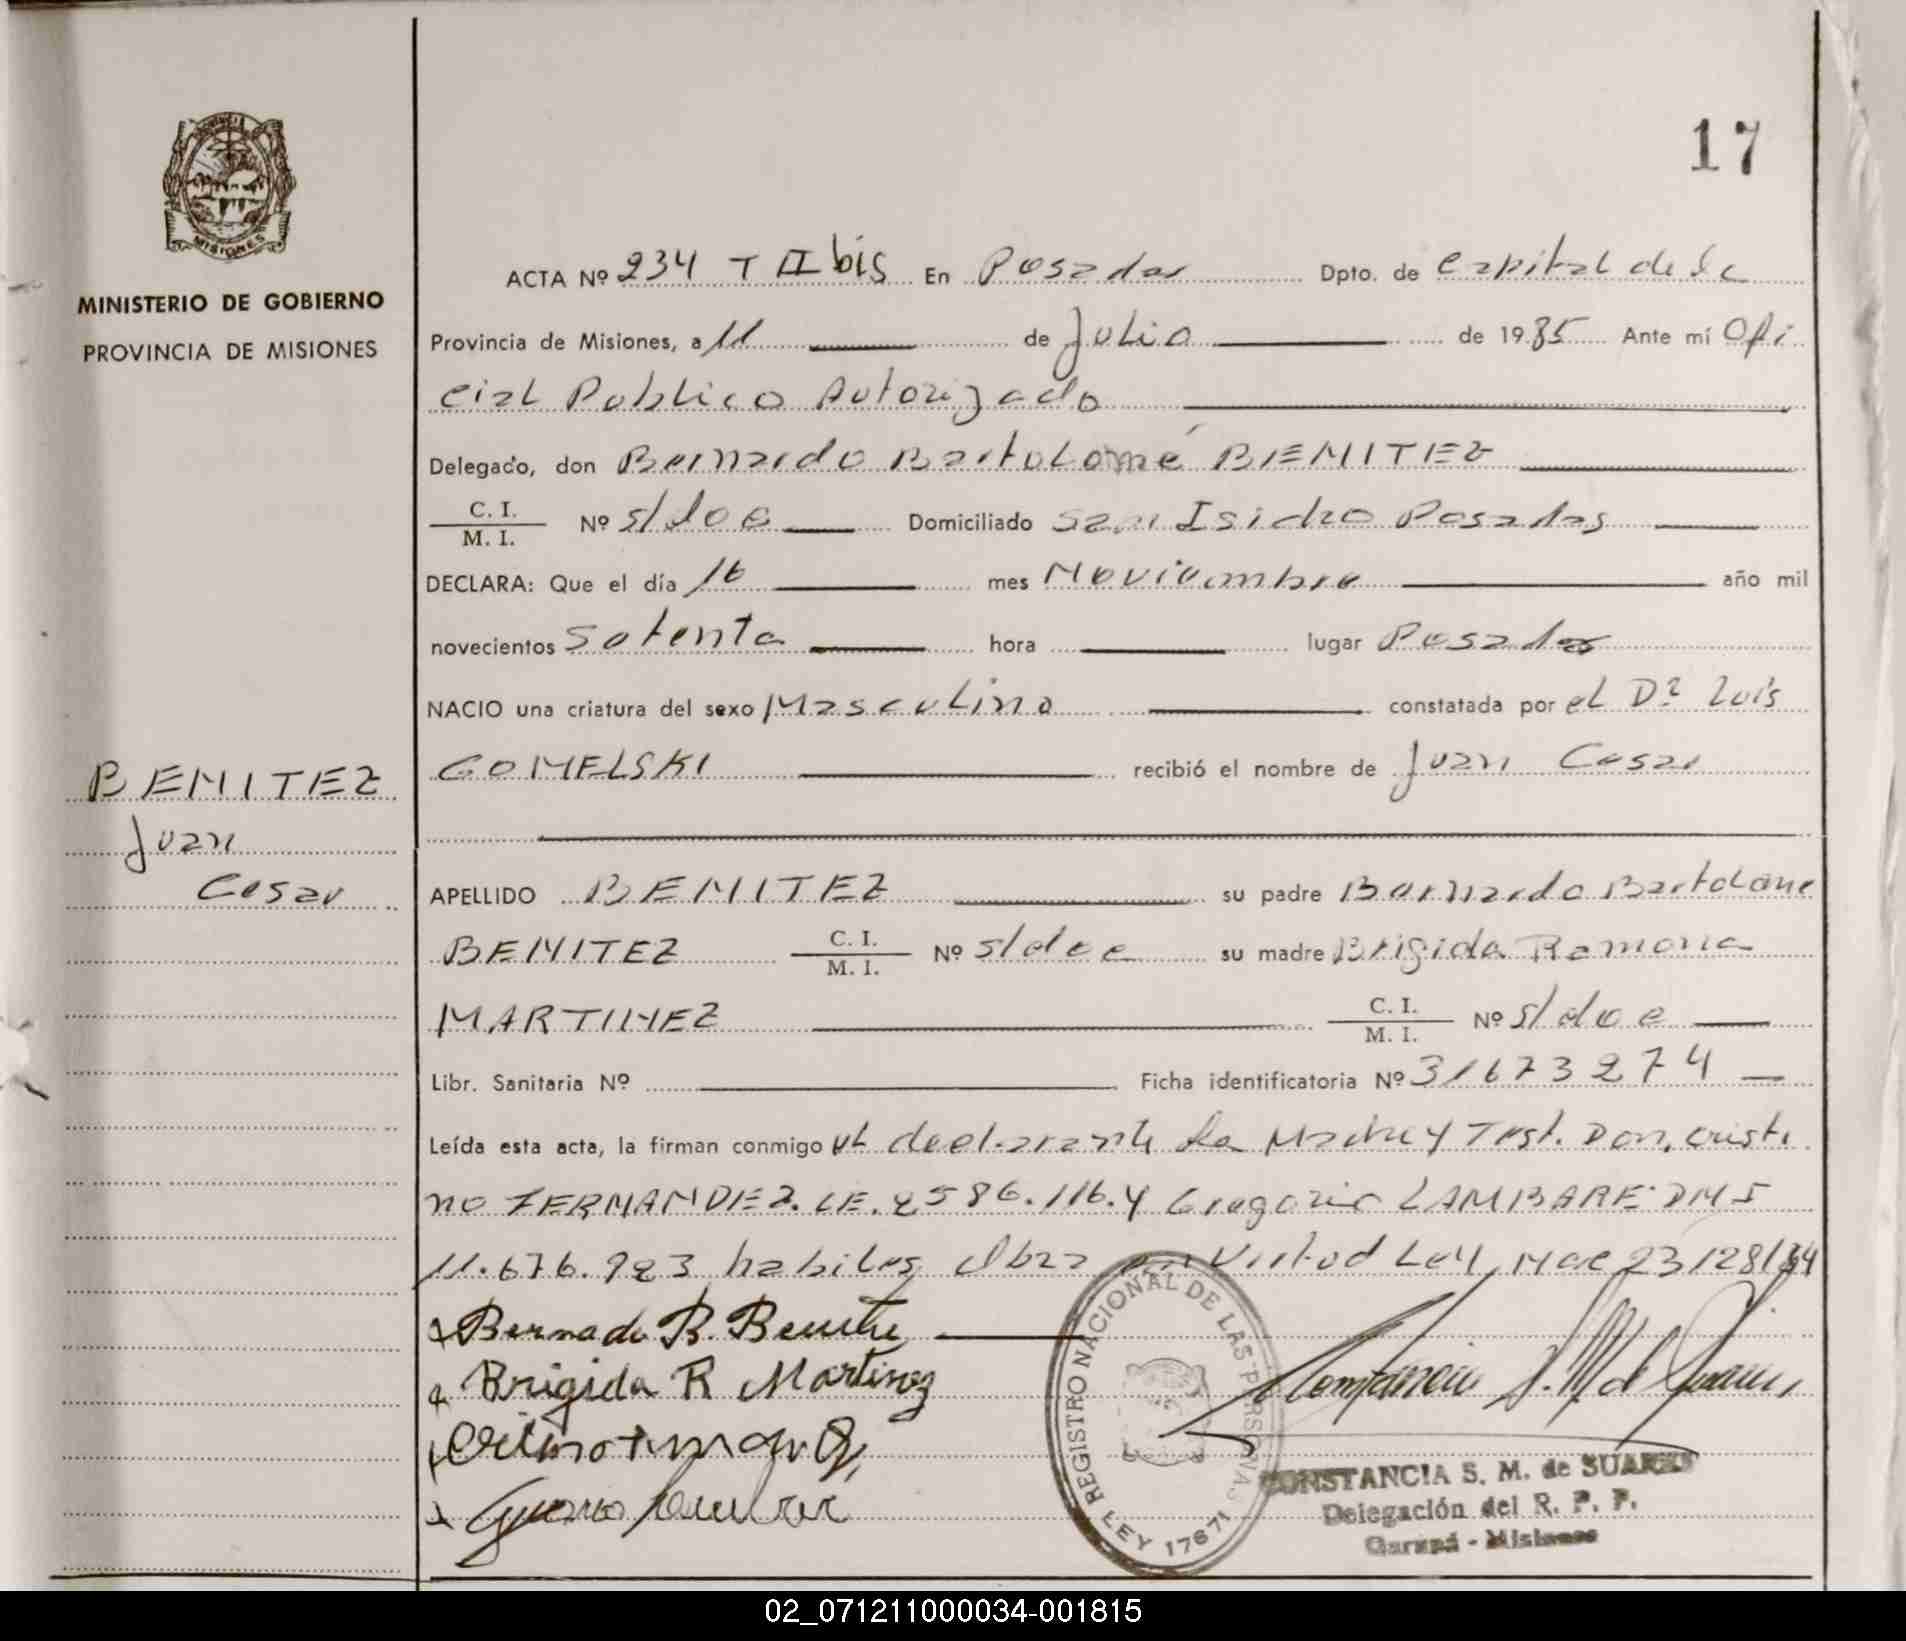 17
PROVINCIA
MISIONES
MINISTERIO DE GOBIERNO
PROVINCIA DE MISIONES
ACTA Nº 234 T II bis En Posadas Dpto. de Capital de la
Provincia de Misiones, a 11 de Julio de 1985 Ante mí Ofi
cial Publico Autorizado
Delegado, don Bernardo Bartolomé BENITEZ
C. I.
M. I. Nº s/doc Domiciliado San Isidro Posadas
DECLARA: Que el día 16 mes Noviembre año mil
novecientos setenta hora lugar Posadas
NACIO una criatura del sexo Masculino constatada por el Dr Luis
GOMELSKI recibió el nombre de Juan Cesar
BENITEZ
Juan
Cesar
APELLIDO BENITEZ su padre Bernardo Bartolome
BENITEZ C. I.
M. I. Nº s/doc su madre Brigida Ramona
MARTINEZ C. I.
M. I. Nº s/doc
Libr. Sanitaria Nº Ficha identificatoria Nº 31673274
Leída esta acta, la firman conmigo el declarante la Madre y Test. Don, Cristi
no FERNANDEZ. CE. 2586.116. y Gregorio LAMBARE DNI
11.676.923 habiles Obra en Virtud Ley Nac 23128/84
Bernado B. Benite
Brigida R Martinez
REGISTRO NACIONAL DE LAS PERSONAS
LEY 17671
CONSTANCIA S. M. de SUAREZ
Delegación del R. P. P.
Garupá - Misiones
02_071211000034-001815